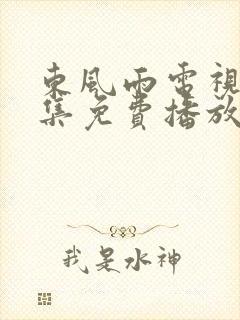 東風雨電視
集免費播放
我是水神